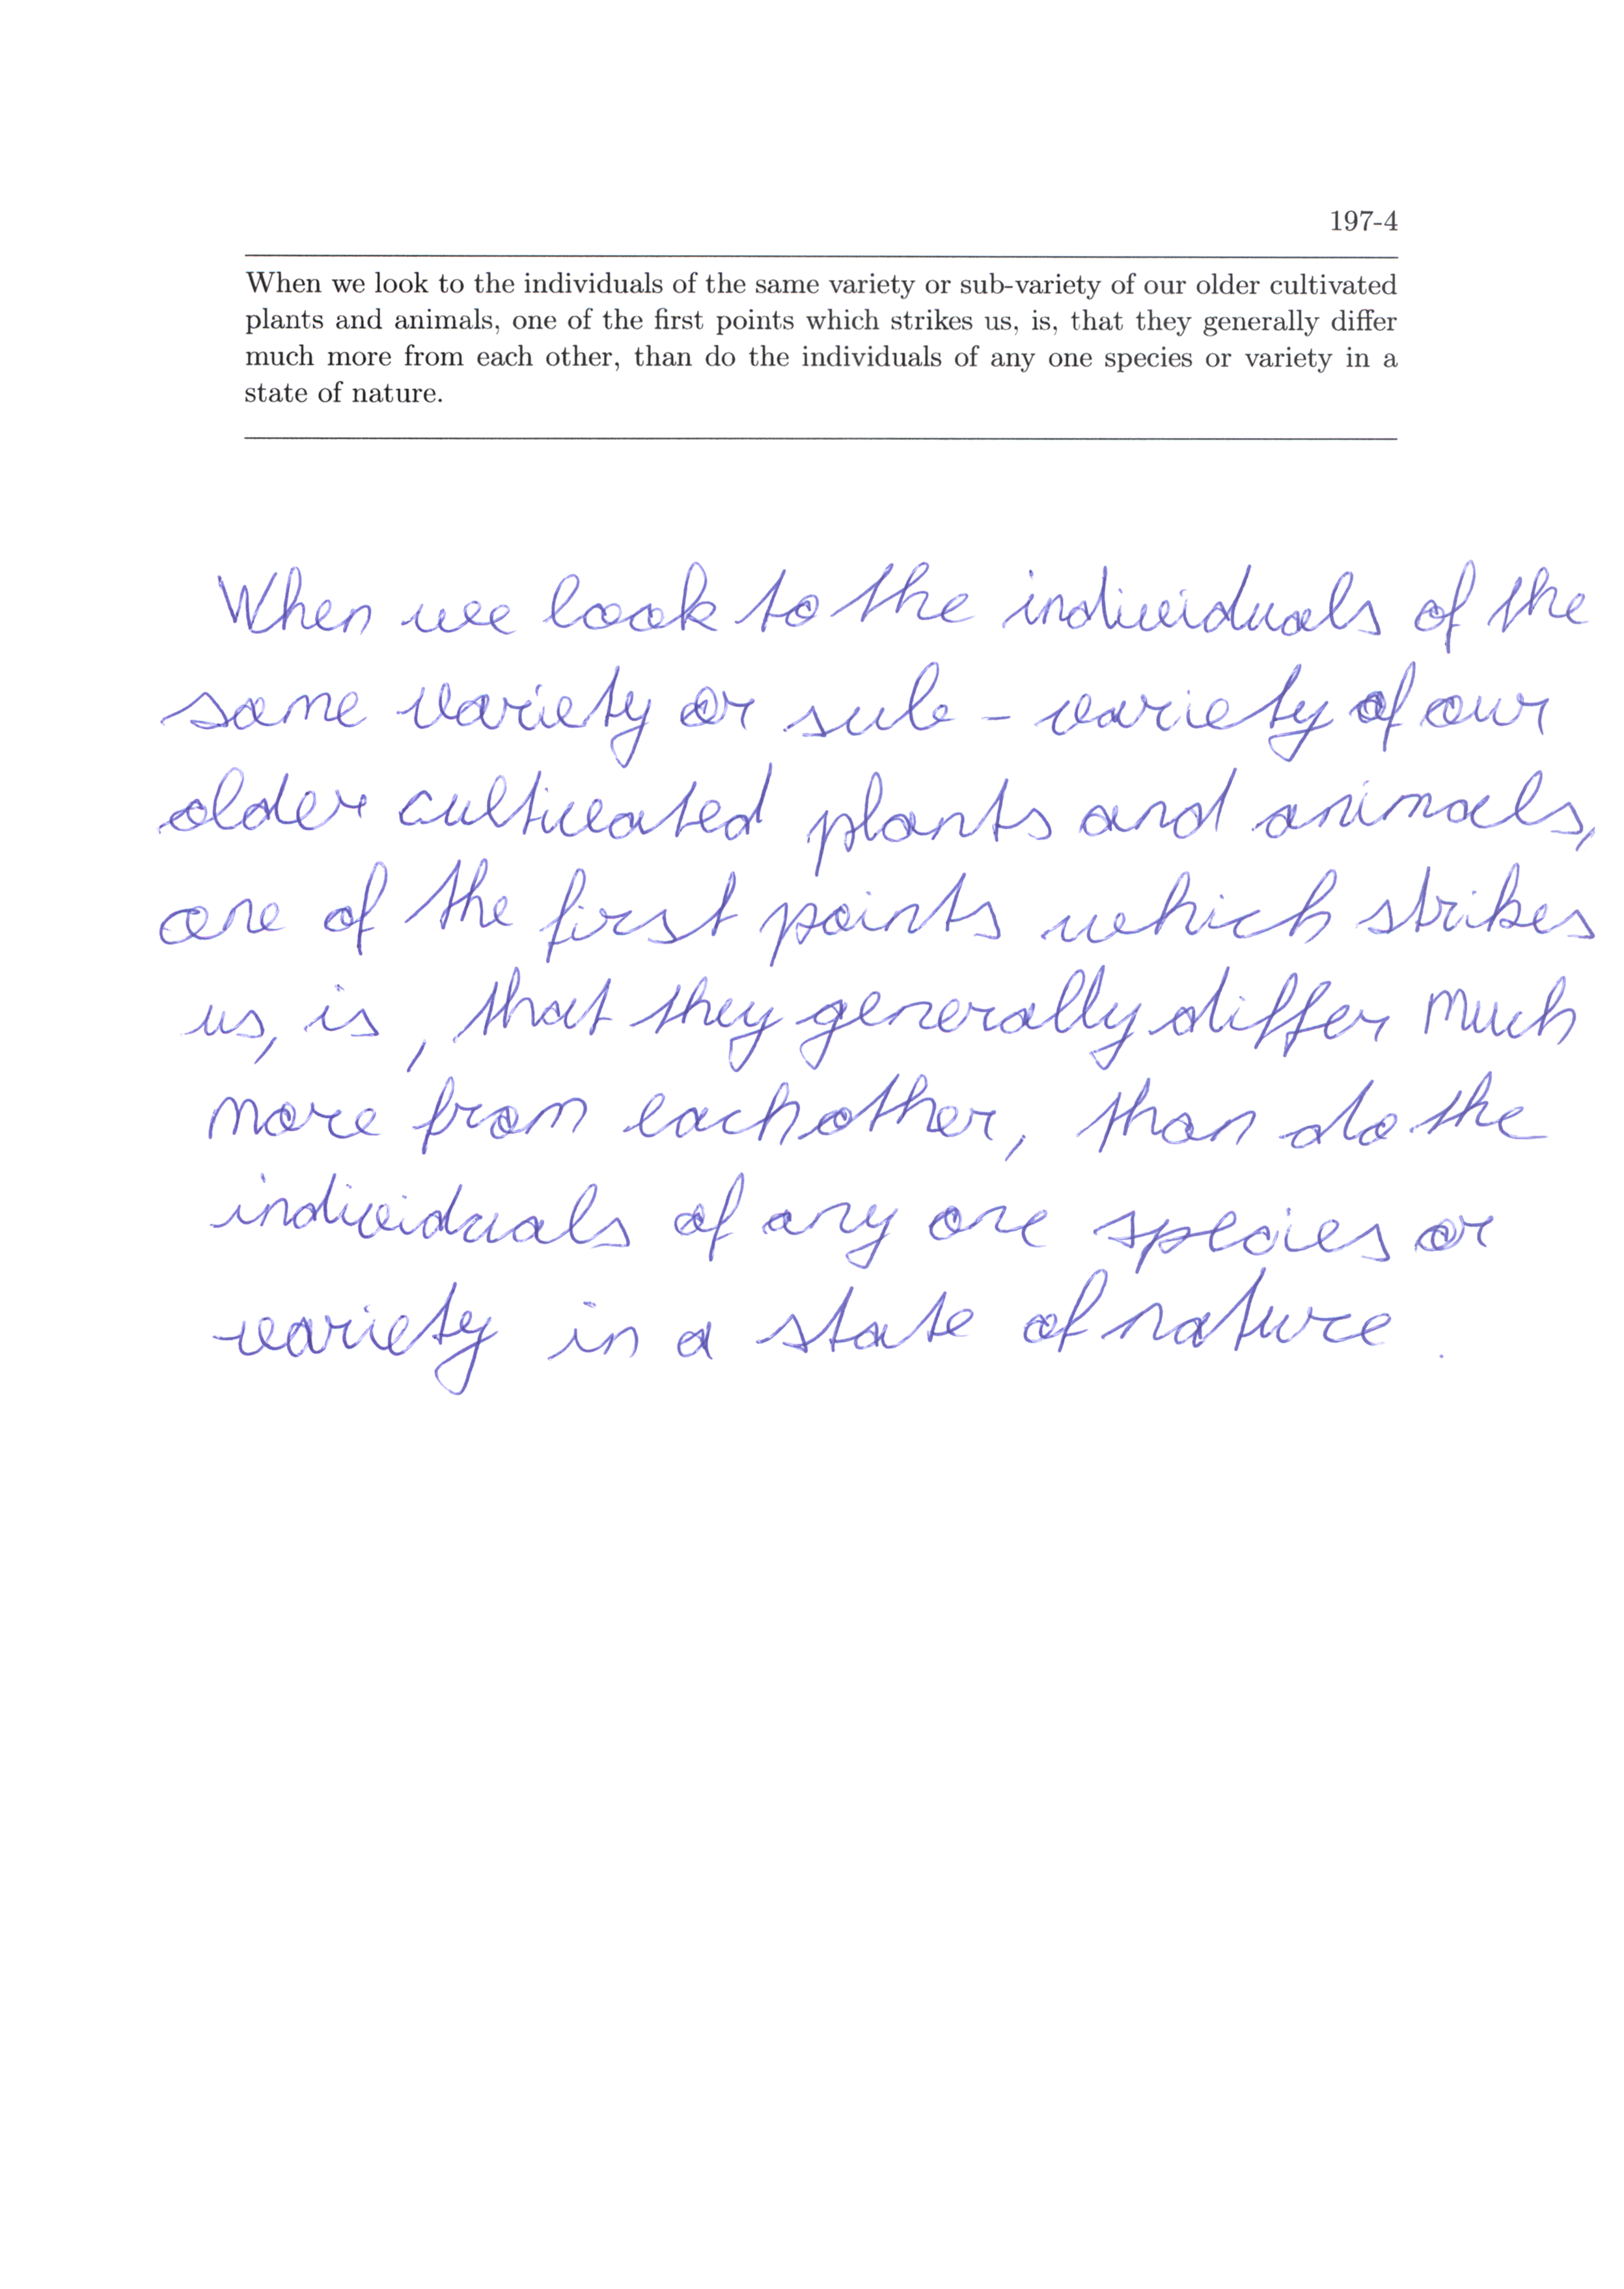 197-4
When we look to the individuals of the same variety or sub-variety of our older cultivated
plants and animals, one of the first points which strikes us, is, that they generally differ
much more from each other, than do the individuals of any one species or variety in a
state of nature.
When we look to the individuals of the
same variety or sub - variety of our
older cultivated plants and animals,
one of the first points which strikes
us, is, that they generally differ much
more from each other, than do the
individuals of any one species or
variety in a state of nature.